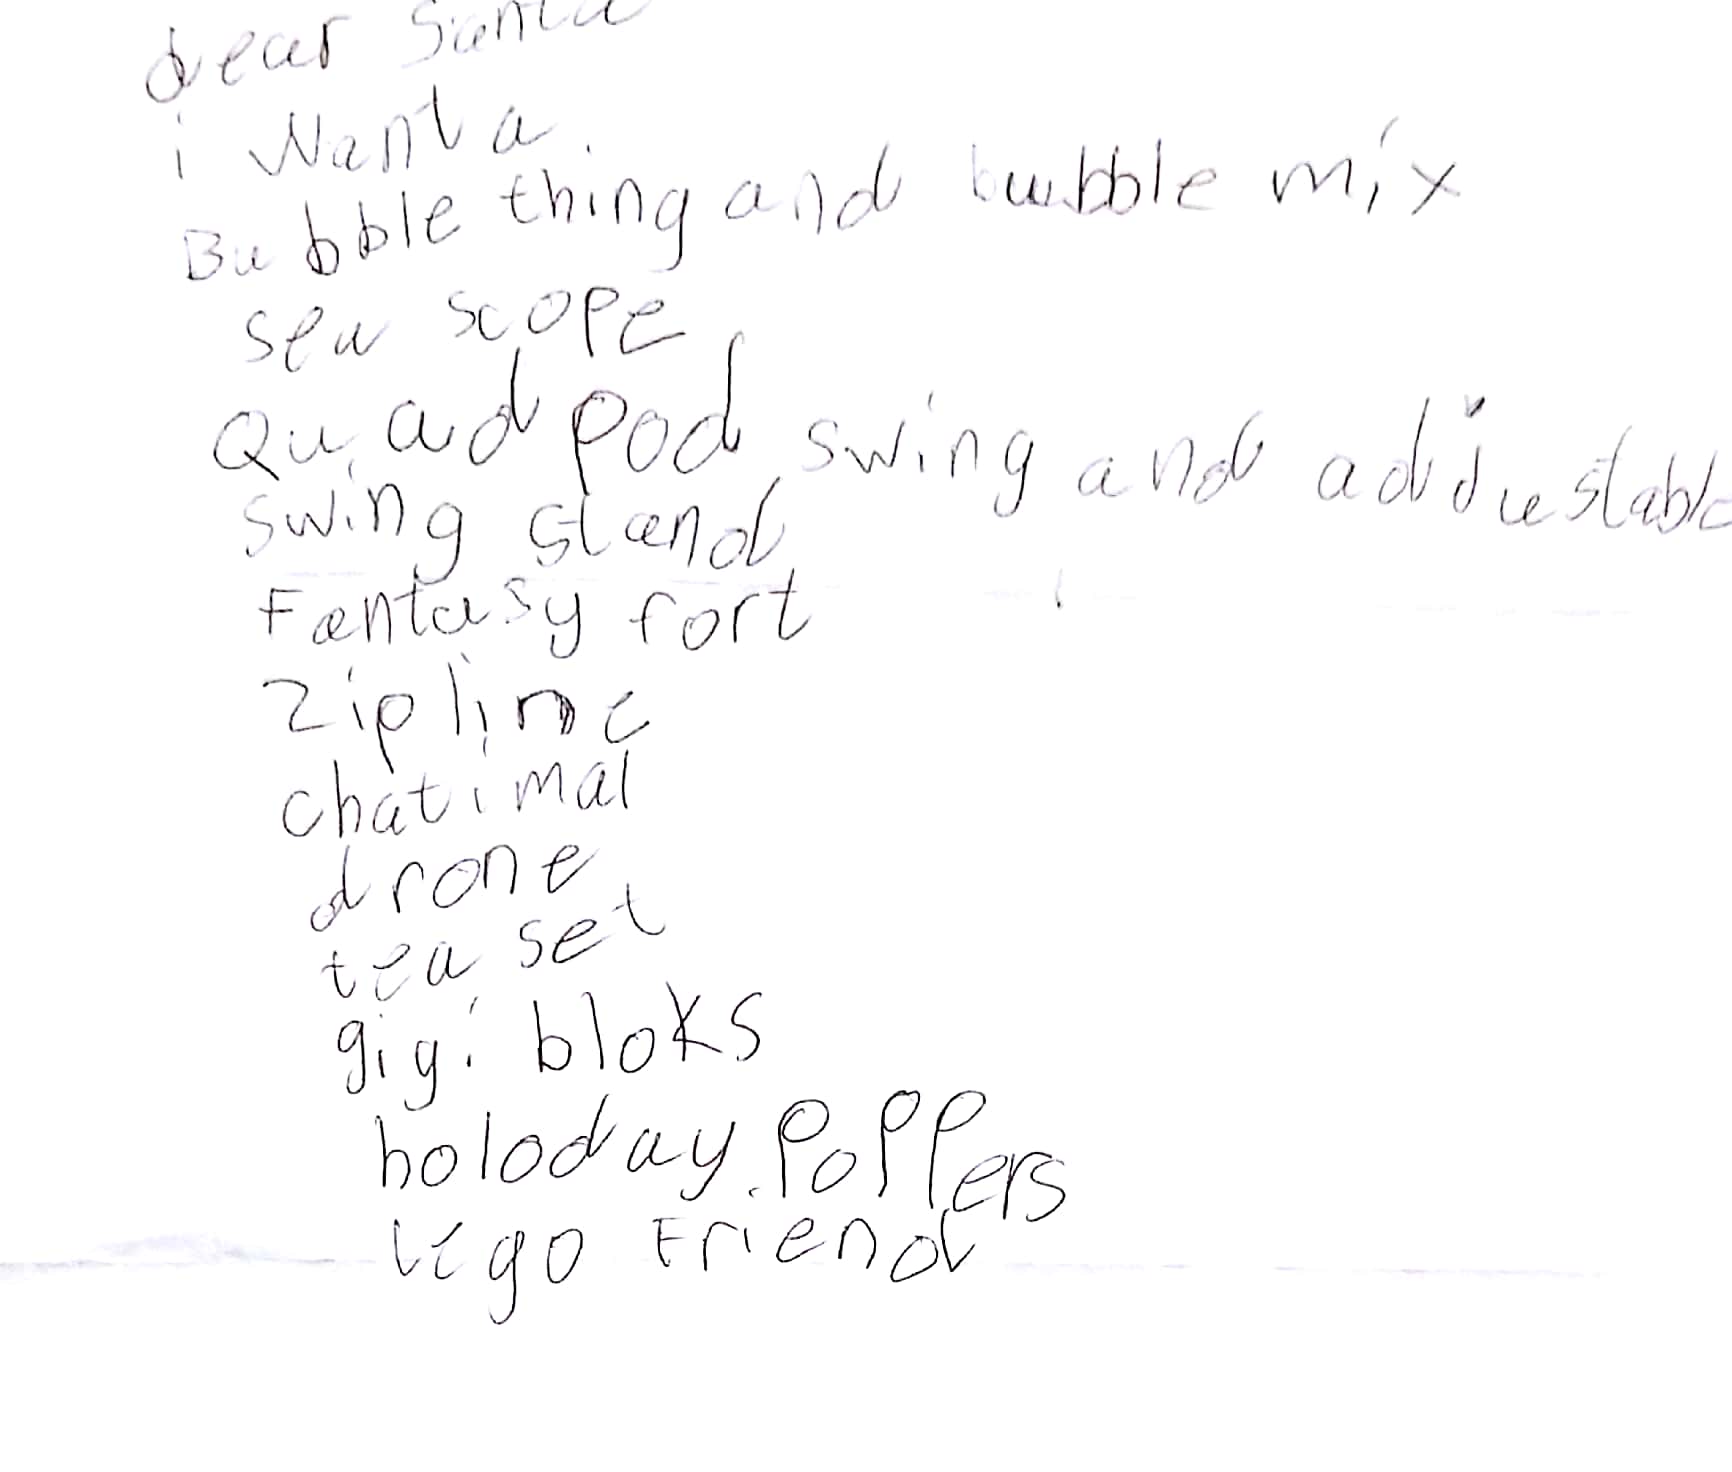 dear Santa
i Want a
Bubble thing and bubble mix
sea scope
Quad pod swing and addjustable
swing stand
Fantasy fort
Zip line
chatimal
drone
tea set
gigi bloks
holoday Poppers
Lego Friend